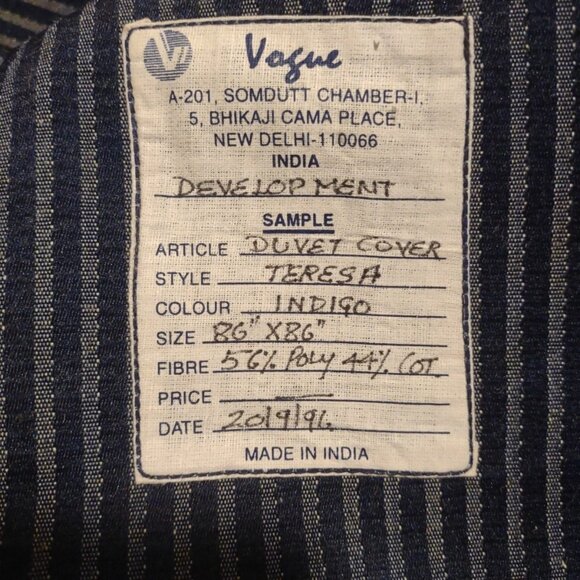 Vogue
A-201, SOMDUTT CHAMBER-I,
5, BHIKAJI CAMA PLACE,
NEW DELHI-110066
INDIA
DEVELOPMENT
SAMPLE
ARTICLE DUVET COVER
STYLE TERESA
COLOUR INDIGO
SIZE 86" X86"
FIBRE 56% POLY 44% COT.
PRICE —
DATE 20/9/96
MADE IN INDIA